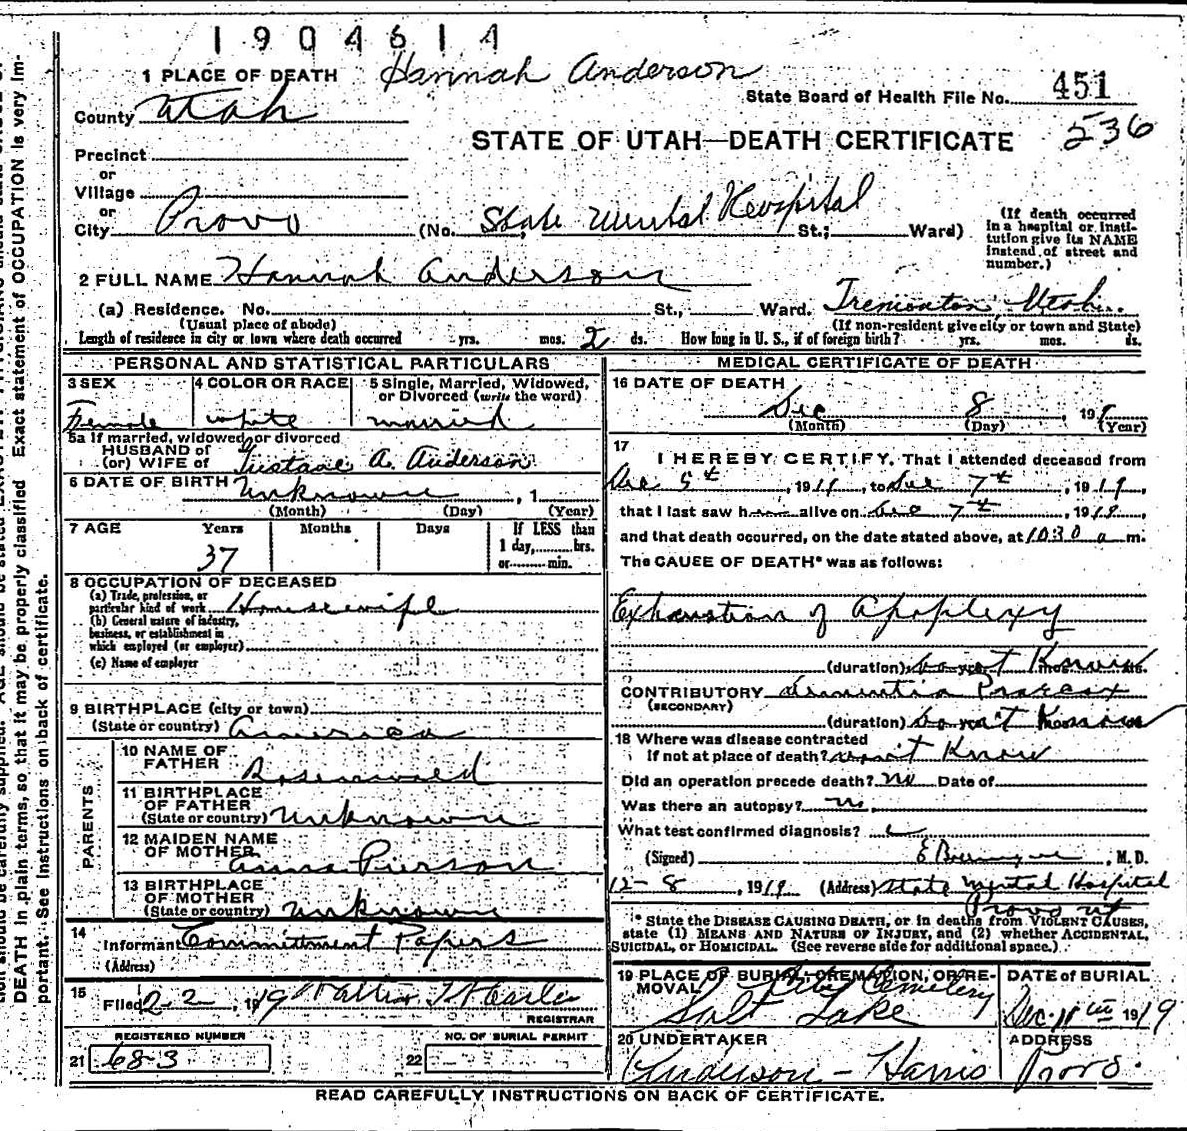 1904614
Hannah Anderson
1 PLACE OF DEATH
State Board of Health File No. 451
County Utah
536
STATE OF UTAH—DEATH CERTIFICATE
Precinct
or
Village
or
City Provo (No. State Mental Hospital St.; Ward)
(If death occurred in a hospital or insti-
tution give its NAME
instead of street and
number.)
2 FULL NAME Hannah Anderson
(a) Residence. No. St., Ward. Tremonton, Utah.
(Usual place of abode) (If non-resident give city or town and State)
Length of residence in city or town where death occurred yrs. mos. 2 ds. How long in U. S., if of foreign birth? yrs. mos. ds.
PERSONAL AND STATISTICAL PARTICULARS
3 SEX 4 COLOR OR RACE 5 Single, Married, Widowed,
or Divorced (write the word)
Female white married
5a If married, widowed, or divorced
HUSBAND of
(or) WIFE of Gustave A. Anderson
6 DATE OF BIRTH Unknown , 1
(Month) (Day) (Year)
7 AGE Years Months Days If LESS than
1 day, hrs.
37 or min.
8 OCCUPATION OF DECEASED
(a) Trade, profession, or
particular kind of work Housewife
(b) General nature of industry,
business, or establishment in
which employed (or employer)
(c) Name of employer
9 BIRTHPLACE (city or town)
(State or country) America
PARENTS
10 NAME OF
FATHER
11 BIRTHPLACE
OF FATHER
(State or country) Unknown
12 MAIDEN NAME
OF MOTHER Anna Pierson
13 BIRTHPLACE
OF MOTHER
(State or country) Unknown
14
Informant Committment Papers
(Address)
15
Filed 2-2, 19 19
REGISTRAR
REGISTERED NUMBER NO. OF BURIAL PERMIT
21 683 22
MEDICAL CERTIFICATE OF DEATH
16 DATE OF DEATH
Dec 8, 191
(Month) (Day) (Year)
17
I HEREBY CERTIFY, That I attended deceased from
Dec 5th, 1919, to Dec 7th, 1919,
that I last saw her alive on Dec 7th, 1919,
and that death occurred, on the date stated above, at 1030 a m.
The CAUSE OF DEATH* was as follows:
Exhaustion of Apoplexy
(duration) Don't Know
CONTRIBUTORY Dementia Praecox
(SECONDARY)
(duration) Don't Know
18 Where was disease contracted
If not at place of death? Don't Know
Did an operation precede death? no Date of
Was there an autopsy? no
What test confirmed diagnosis?
(Signed) , M. D.
12-8, 1919 (Address) State Mental Hospital
Provo Ut
* State the DISEASE CAUSING DEATH, or in deaths from VIOLENT CAUSES,
state (1) MEANS AND NATURE OF INJURY, and (2) whether ACCIDENTAL,
SUICIDAL, or HOMICIDAL. (See reverse side for additional space.)
19 PLACE OF BURIAL, CREMATION, OR RE-
MOVAL City Cemetery
Salt Lake
DATE of BURIAL
Dec. 11th 1919
20 UNDERTAKER
Anderson - Harris
ADDRESS
Provo.
READ CAREFULLY INSTRUCTIONS ON BACK OF CERTIFICATE.
DEATH in plain terms, so that it may be properly classified. Exact statement of OCCUPATION is very im-
portant. See instructions on back of certificate.